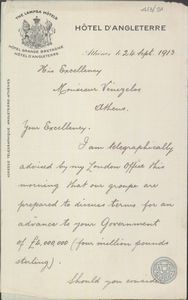 THE LAMPSA HÔTELS
HÔTEL GRANDE BRETAGNE
HÔTEL D'ANGLETERRE
HÔTEL D'ANGLETERRE
Athens, 24 Sept. 1913
His Excellency
Monsieur Venezelos
Athens.
Your Excellency,
I am telegraphically
advised by my London Office this
morning that our groupe are
prepared to discuss terms for an
advance to your Government
of £4,000,000 (four million pounds
sterling).
Should you consider